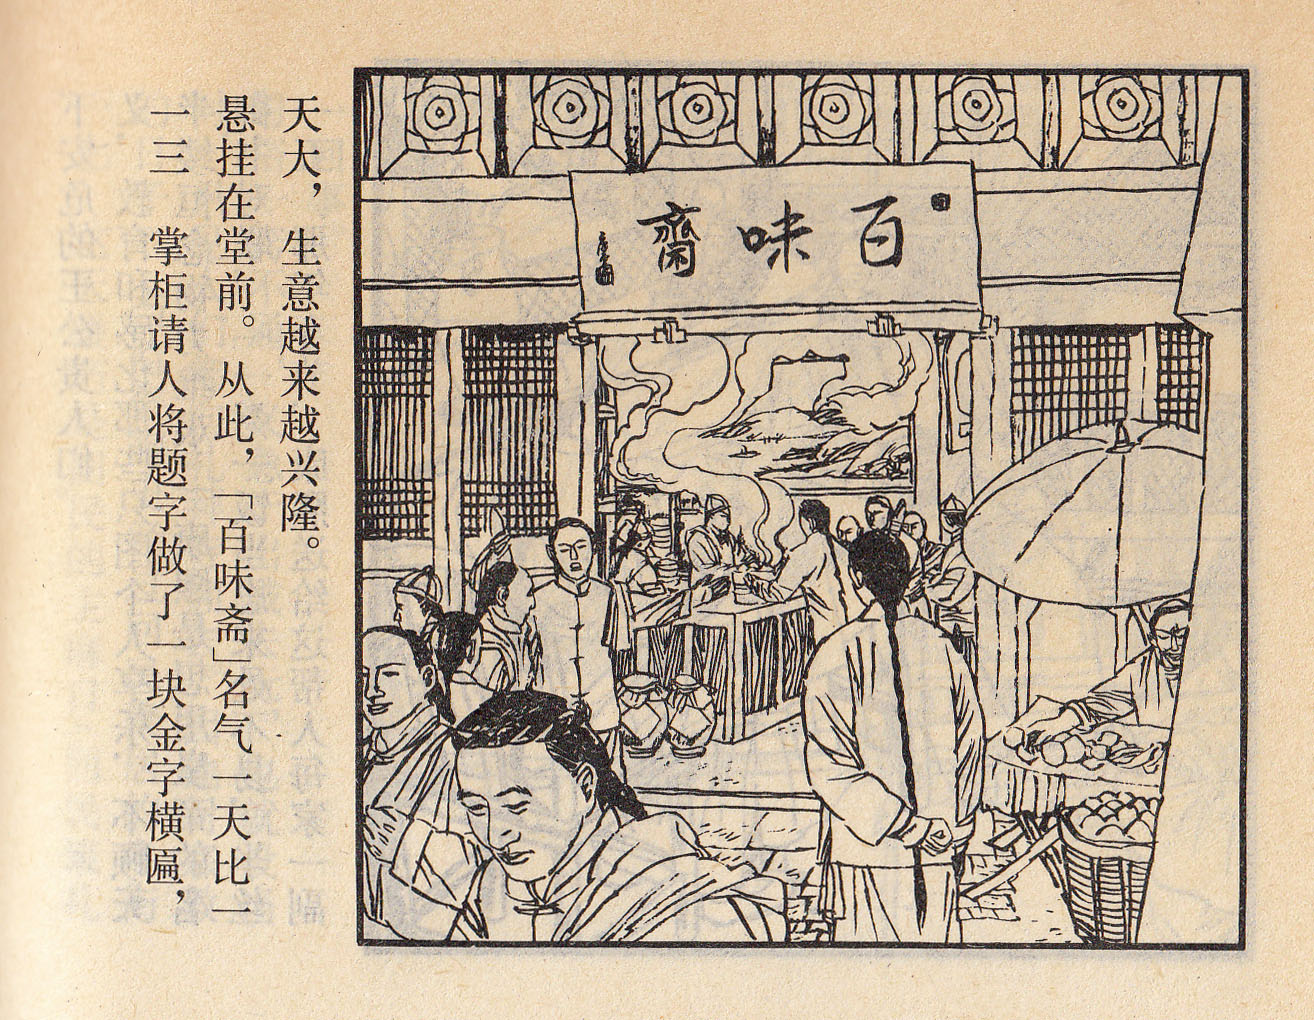 一三　掌柜请人将题字做了一块金字横匾，
悬挂在堂前。从此，「百味斋」名气一天比一
天大，生意越来越兴隆。
百味齋